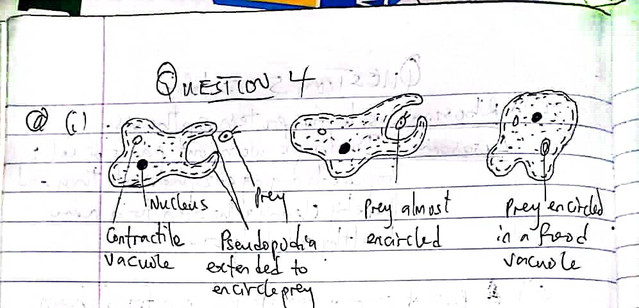 QUESTION 4
a (i)
Nucleus
Prey
Contractile
vacuole
Pseudopodia
extended to
encircle prey
Prey almost
encircled
Prey encircled
in a food
vacuole